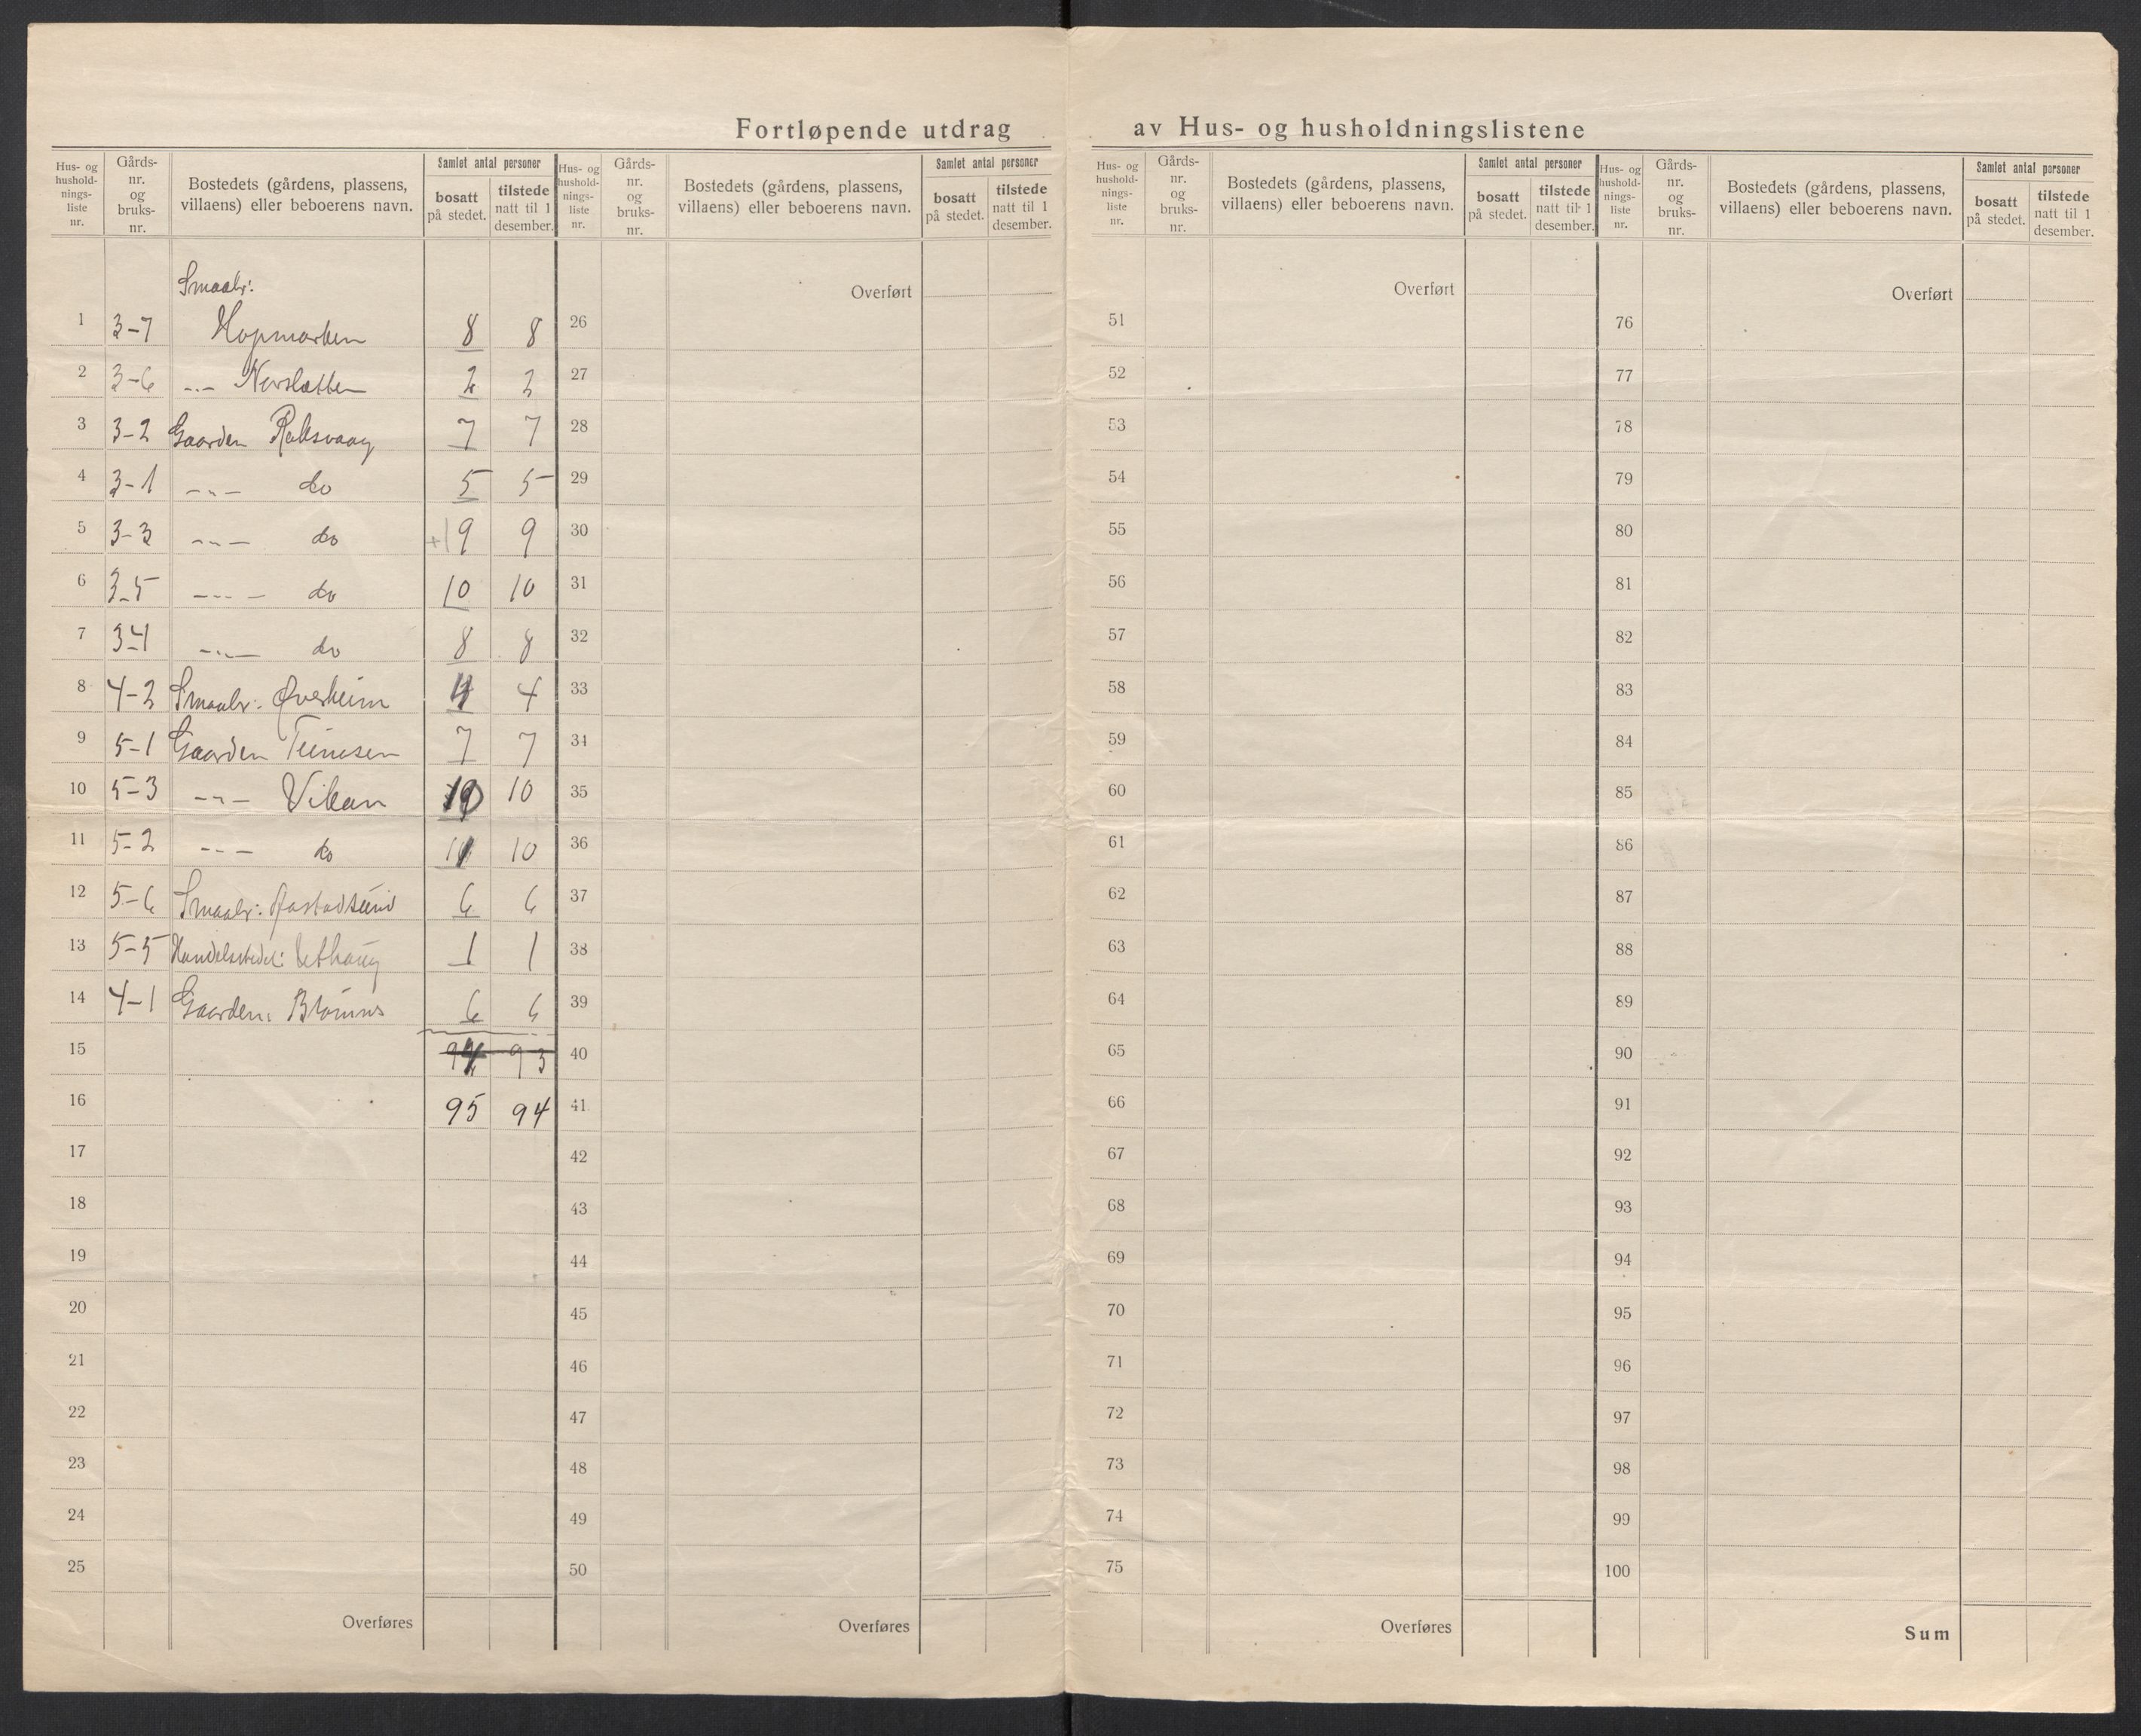 Fortløpende utdrag av Hus- og husholdningslistene
Hus- og hushold-nings-liste nr. Gårds-nr. og bruks-nr. Bostedets (gårdens, plassens, villaens) eller beboerens navn. Samlet antal personer bosatt på stedet. tilstede natt til 1 desember.
Hus- og hushold-nings-liste nr. Gårds-nr. og bruks-nr. Bostedets (gårdens, plassens, villaens) eller beboerens navn. Samlet antal personer bosatt på stedet. tilstede natt til 1 desember.
Hus- og hushold-nings-liste nr. Gårds-nr. og bruks-nr. Bostedets (gårdens, plassens, villaens) eller beboerens navn. Samlet antal personer bosatt på stedet. tilstede natt til 1 desember.
Hus- og hushold-nings-liste nr. Gårds-nr. og bruks-nr. Bostedets (gårdens, plassens, villaens) eller beboerens navn. Samlet antal personer bosatt på stedet. tilstede natt til 1 desember.
Smaabr:
1 3-7 Hopmarken 8 8
2 3-6 -"- 2 2
3 3-2 Gaarden Raksvaag 7 7
4 3-1 -"- do 5 5
5 3-3 -"- do +1 9 9
6 3-5 -"- do 10 10
7 3-4 -"- do 8 8
8 4-2 Smaabr: Øverheim 4 4
9 5-1 Gaarden 7 7
10 5-3 -"- Vikan 10 10
11 5-2 -"- do 11 10
12 5-6 Smaabr: 6 6
13 5-5 Handelsstedet: Uthaug 1 1
14 4-1 Gaarden: 6 6
15 94 93
16 95 94
17
18
19
20
21
22
23
24
25
Overføres
Overført
26
27
28
29
30
31
32
33
34
35
36
37
38
39
40
41
42
43
44
45
46
47
48
49
50
Overføres
Overført
51
52
53
54
55
56
57
58
59
60
61
62
63
64
65
66
67
68
69
70
71
72
73
74
75
Overføres
Overført
76
77
78
79
80
81
82
83
84
85
86
87
88
89
90
91
92
93
94
95
96
97
98
99
100
Sum